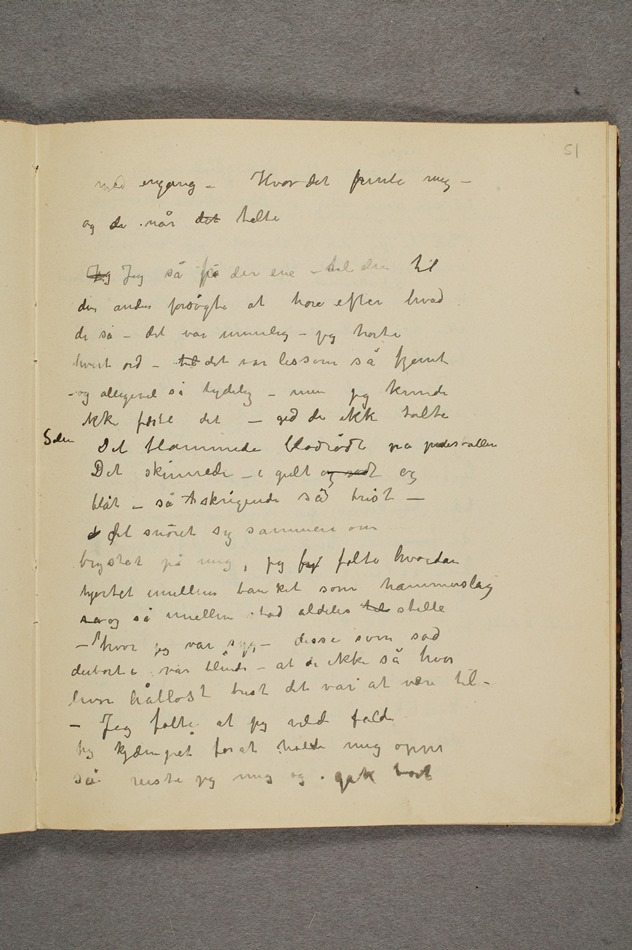 51
med engang – Hvor det pinte mig –
og de når det talte
Jeg Jeg så fra den ene – til den til
den anden forsøgte at høre efter hvad
de sa – det var umulig – jeg hørte
hvert ord – til det var lissom så fjernt
– og alligevel så tydelig – men jeg kunde
ikke det – gid de ikke talte
Solen Det flammende blodrødt på pudevallen
Det skinnede – i gult og rødt og
blåt – så skrigende så trist –
det snøret sig sammen om
brystet på mig, jeg følte hvordan
hjertet imellem banket som hammerslag
og så imellem stod aldeles til stille
– hvor jeg var syg – disse som sad
derborte var blinde – at de ikke så hvor
hvor håbløst trist det var at være til –
– Jeg følte at jeg vilde falde
Jeg kjæmpet forat holde mig oppe
så reiste jeg mig og gik bort